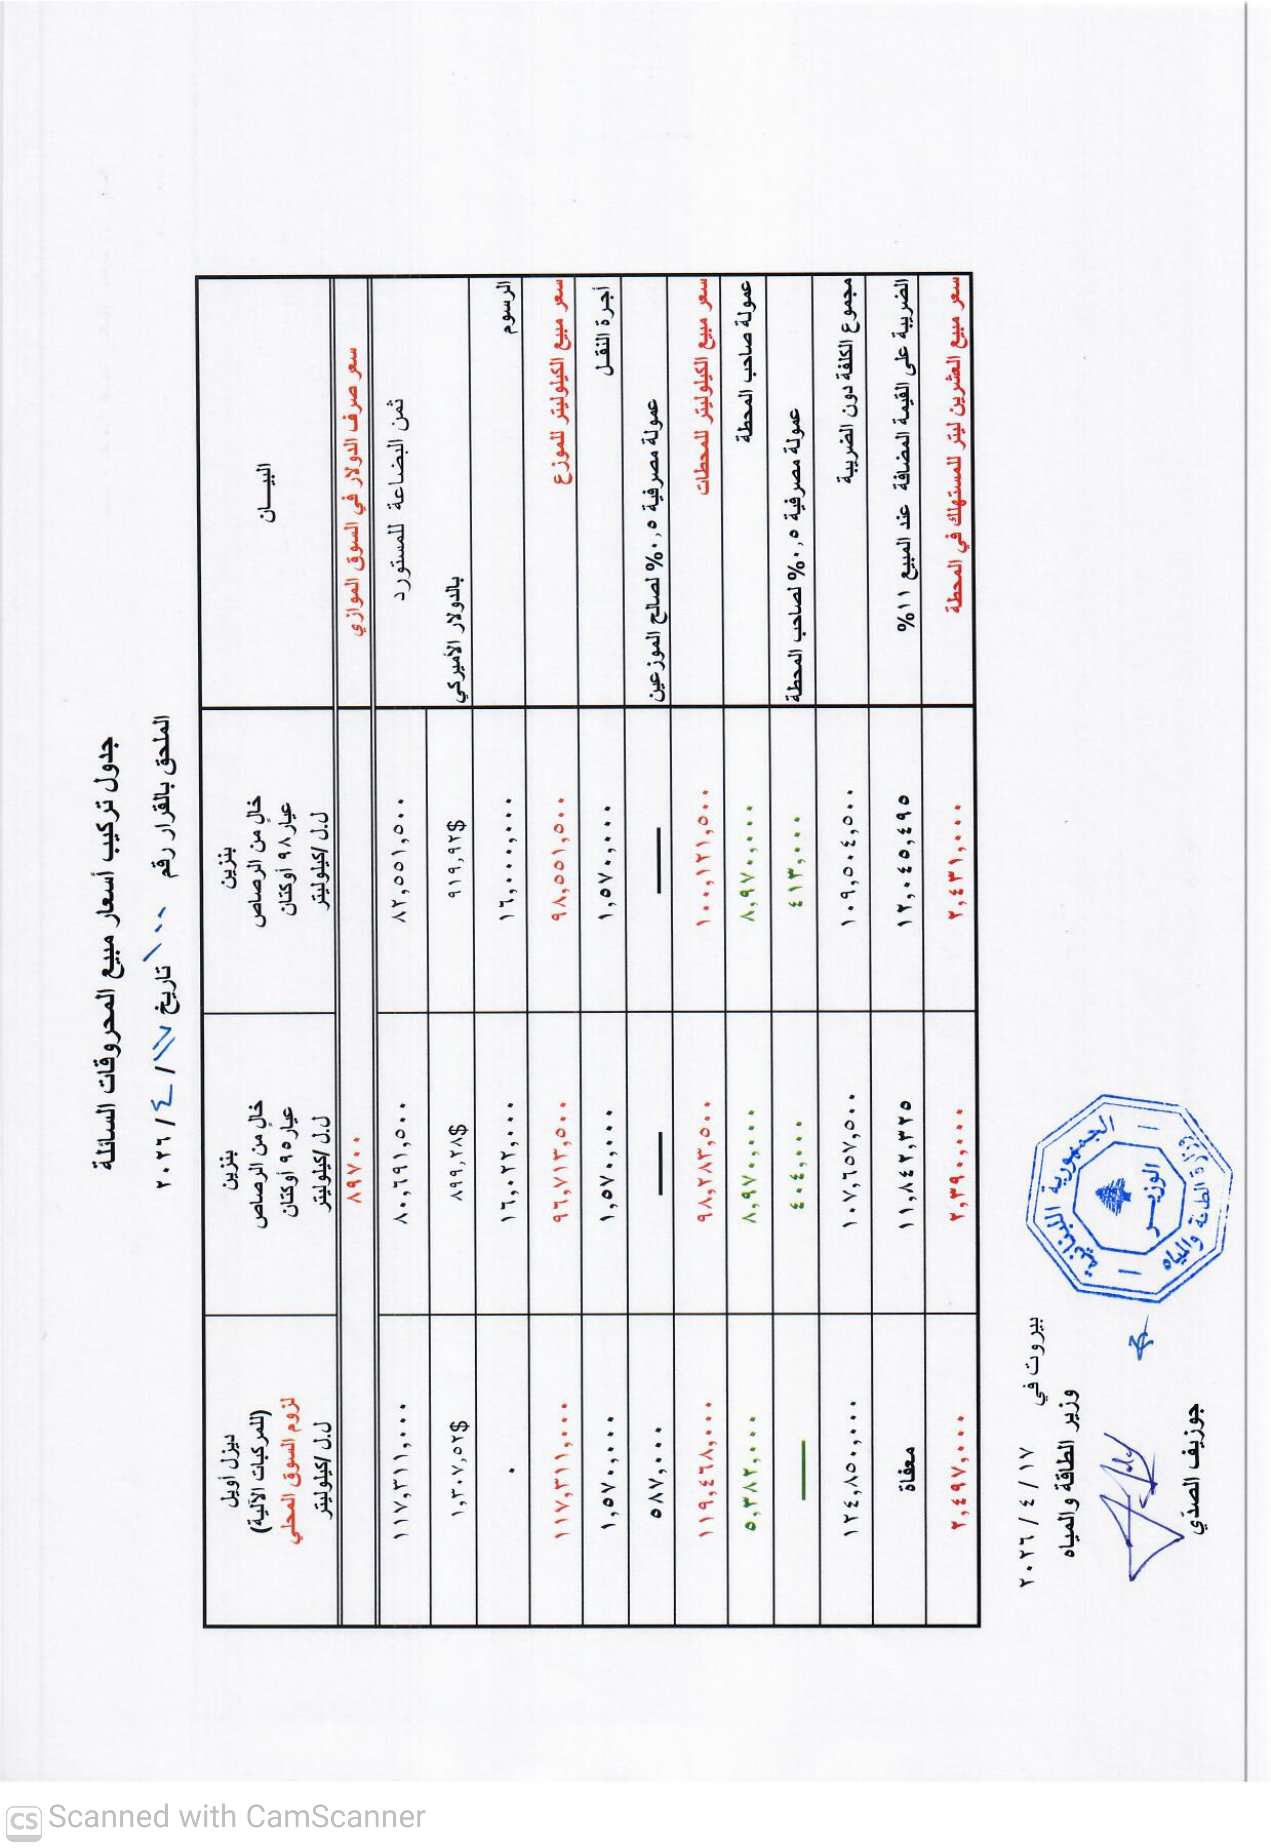 جدول تركيب أسعار مبيع المحروقات السائلة
الملحق بالقرار رقم ١٠٠ تاريخ ١٧ / ٤ / ٢٠٢٦
البيــان
بنزين
خالٍ من الرصاص
عيار ٩٨ أوكتان
ل.ل/كيلوليتر
بنزين
خالٍ من الرصاص
عيار ٩٥ أوكتان
ل.ل/كيلوليتر
ديزل أويل
(للمركبات الآلية)
لزوم السوق المحلي
ل.ل/كيلوليتر
سعر صرف الدولار في السوق الموازي ٨٩٧٠٠
ثمن البضاعة للمستورد ٨٢,٥٥١,٥٠٠ ٨٠,٦٩١,٥٠٠ ١١٧,٣١١,٠٠٠
بالدولار الأميركي ٩١٩,٩٢$ ٨٩٩,٢٨$ ١,٣٠٧,٥٢$
الرسوم ١٦,٠٠٠,٠٠٠ ١٦,٠٢٢,٠٠٠ ٠
سعر مبيع الكيلوليتر للموزع ٩٨,٥٥١,٥٠٠ ٩٦,٧١٣,٥٠٠ ١١٧,٣١١,٠٠٠
أجرة النقـل ١,٥٧٠,٠٠٠ ١,٥٧٠,٠٠٠ ١,٥٧٠,٠٠٠
عمولة مصرفية ٠,٥% لصالح الموزعين — — ٥٨٧,٠٠٠
سعر مبيع الكيلوليتر للمحطات ١٠٠,١٢١,٥٠٠ ٩٨,٢٨٣,٥٠٠ ١١٩,٤٦٨,٠٠٠
عمولة صاحب المحطة ٨,٩٧٠,٠٠٠ ٨,٩٧٠,٠٠٠ ٥,٣٨٢,٠٠٠
عمولة مصرفية ٠,٥% لصاحب المحطة ٤١٣,٠٠٠ ٤٠٤,٠٠٠ —
مجموع الكلفة دون الضريبة ١٠٩,٥٠٤,٥٠٠ ١٠٧,٦٥٧,٥٠٠ ١٢٤,٨٥٠,٠٠٠
الضريبة على القيمة المضافة عند المبيع ١١% ١٢,٠٤٥,٤٩٥ ١١,٨٤٢,٣٢٥ معفاة
سعر مبيع العشرين ليتر للمستهلك في المحطة ٢,٤٣١,٠٠٠ ٢,٣٩٠,٠٠٠ ٢,٤٩٧,٠٠٠
بيروت في ١٧ / ٤ / ٢٠٢٦
وزير الطاقة والمياه
جوزيف الصدّي
الجمهورية اللبنانية
الوزيـر
وزارة الطاقة والمياه
CS Scanned with CamScanner